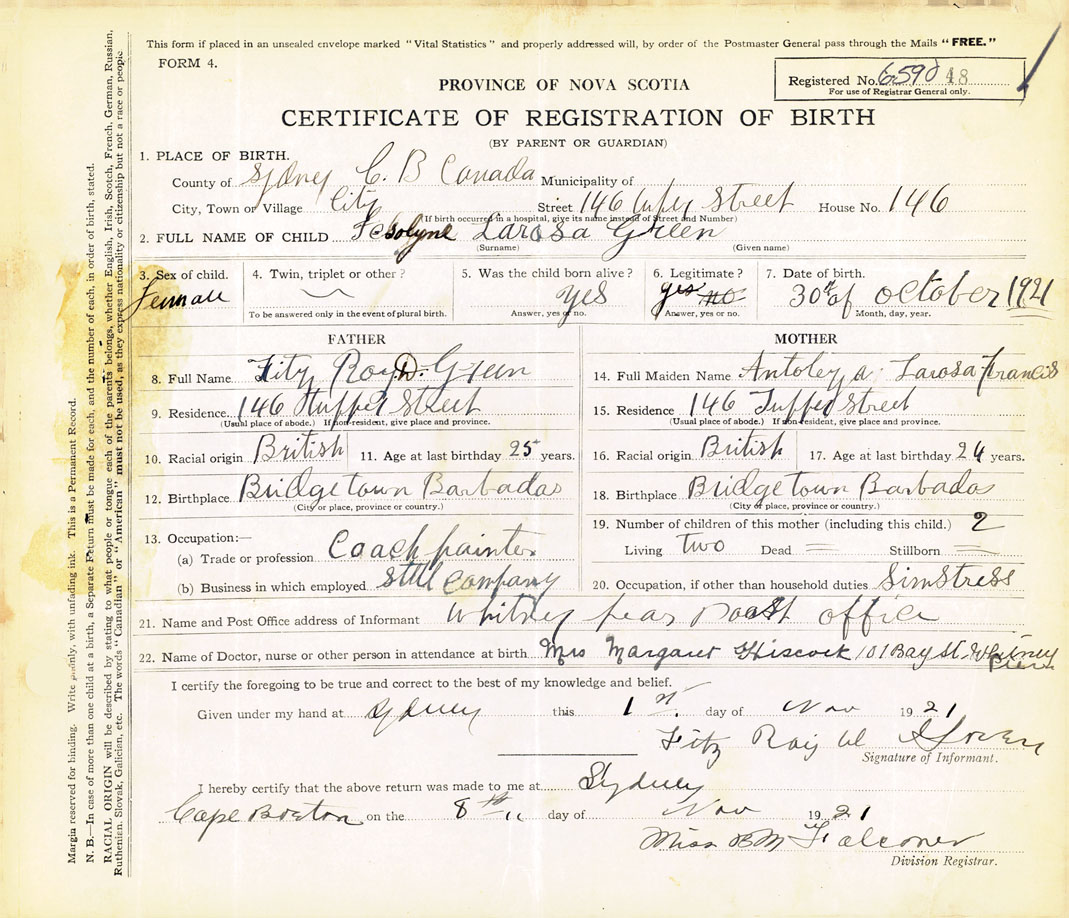 This form if placed in an unsealed envelope marked "Vital Statistics" and properly addressed will, by order of the Postmaster General pass through the Mails "FREE."
FORM 4.
Registered No. 48
For use of Registrar General only.
PROVINCE OF NOVA SCOTIA
CERTIFICATE OF REGISTRATION OF BIRTH
(BY PARENT OR GUARDIAN)
1. PLACE OF BIRTH.
County of Sydney C. B Canada Municipality of
City, Town or Village City Street 146 Street House No. 146
(If birth occurred in a hospital, give its name instead of Street and Number)
2. FULL NAME OF CHILD Larosa Green
(Surname) (Given name)
3. Sex of child. Female
4. Twin, triplet or other?
To be answered only in the event of plural birth.
5. Was the child born alive? Yes
Answer, yes or no.
6. Legitimate? yes no
Answer, yes or no.
7. Date of birth. 30th of October 1921
Month, day, year.
FATHER
8. Full Name Fitz Roy D. Green
9. Residence 146 Street
(Usual place of abode.) If non-resident, give place and province.
10. Racial origin British 11. Age at last birthday 25 years.
12. Birthplace Bridgetown Barbados
(City or place, province or country.)
13. Occupation:—
(a) Trade or profession Coach painter
(b) Business in which employed Company
MOTHER
14. Full Maiden Name Larosa Francis
15. Residence 146 Street
(Usual place of abode.) If non-resident, give place and province.
16. Racial origin British 17. Age at last birthday 24 years.
18. Birthplace Bridgetown Barbados
(City or place, province or country.)
19. Number of children of this mother (including this child.) 2
Living two Dead Stillborn
20. Occupation, if other than household duties SimStress
21. Name and Post Office address of Informant Whitney office
22. Name of Doctor, nurse or other person in attendance at birth Mrs Margaret Hiscock 101 Bay St. Whitney Pier
I certify the foregoing to be true and correct to the best of my knowledge and belief.
Given under my hand at Sydney this 1st. day of Nov 1921
Fitz Roy Green
Signature of Informant.
I hereby certify that the above return was made to me at Sydney
Cape Breton on the 8th day of Nov 1921
Miss B M Falconer
Division Registrar.
Margin reserved for binding. Write plainly, with unfading ink. This is a Permanent Record.
N. B.—In case of more than one child at a birth, a Separate Return must be made for each, and the number of each, in order of birth, stated.
RACIAL ORIGIN will be described by stating to what people or tongue each of the parents belongs, whether English, Irish, Scotch, French, German, Russian,
Ruthenian, Slovak, Galician, etc. The words "Canadian" or "American" must not be used, as they express nationality or citizenship but not a race or people